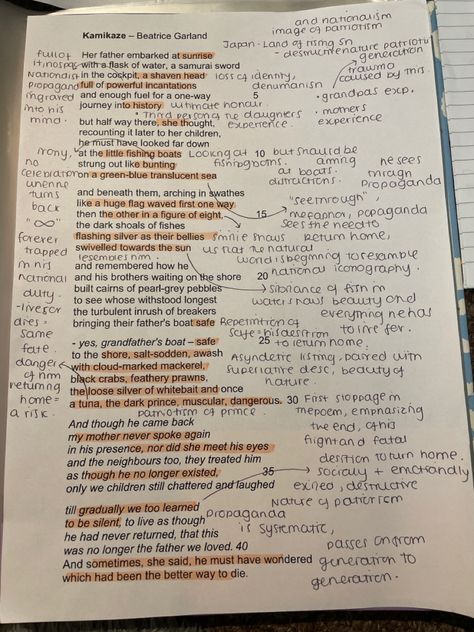 and nationalism
image of patriotism
Kamikaze – Beatrice Garland
Japan - Land of rising sun
Her father embarked at sunrise
with a flask of water, a samurai sword
in the cockpit, a shaven head
full of powerful incantations
and enough fuel for a one-way 5
journey into history
but half way there, she thought,
recounting it later to her children,
he must have looked far down
at the little fishing boats 10
strung out like bunting
on a green-blue translucent sea
and beneath them, arching in swathes
like a huge flag waved first one way
then the other in a figure of eight, 15
the dark shoals of fishes
flashing silver as their bellies
swivelled towards the sun
and remembered how he
and his brothers waiting on the shore 20
built cairns of pearl-grey pebbles
to see whose withstood longest
the turbulent inrush of breakers
bringing their father's boat safe
- yes, grandfather's boat – safe 25
to the shore, salt-sodden, awash
with cloud-marked mackerel,
black crabs, feathery prawns,
the loose silver of whitebait and once
a tuna, the dark prince, muscular, dangerous. 30
And though he came back
my mother never spoke again
in his presence, nor did she meet his eyes
and the neighbours too, they treated him
as though he no longer existed, 35
only we children still chattered and laughed
till gradually we too learned
to be silent, to live as though
he had never returned, that this
was no longer the father we loved. 40
And sometimes, she said, he must have wondered
which had been the better way to die.
full of
propaganda
ingraved
into his
mind.
loss of identity,
generation
trauma
caused by this.
• grandpas exp.
• mothers
experience
ultimate honour.
• Third person of the daughters
experience.
Looking at
fishing boats.
at boats.
distractions.
he sees
through
propaganda
"see through"
metaphor, propaganda
sees the need to
return home,
no
celebration
turns
back
"∞"
forever
trapped
in his
national
duty.
- lives or
dies =
same
fate.
danger
of him
returning
home =
a risk.
simile shows
us that the natural
world is beginning to resemble
national iconography.
sibilance of fish in
water shows beauty and
everything he has
to live for.
Repetition of
safe = his desition
to return home.
Asyndetic listing, paired with
superlative desc, beauty of
nature.
First stoppage in
the poem, emphasizing
the end, of his
flight and fatal
desition to turn home.
patriotism of prince.
socially + emotionally
exiled, destructive
nature of patriotism
propaganda
is systematic,
passes on from
generation to
generation.